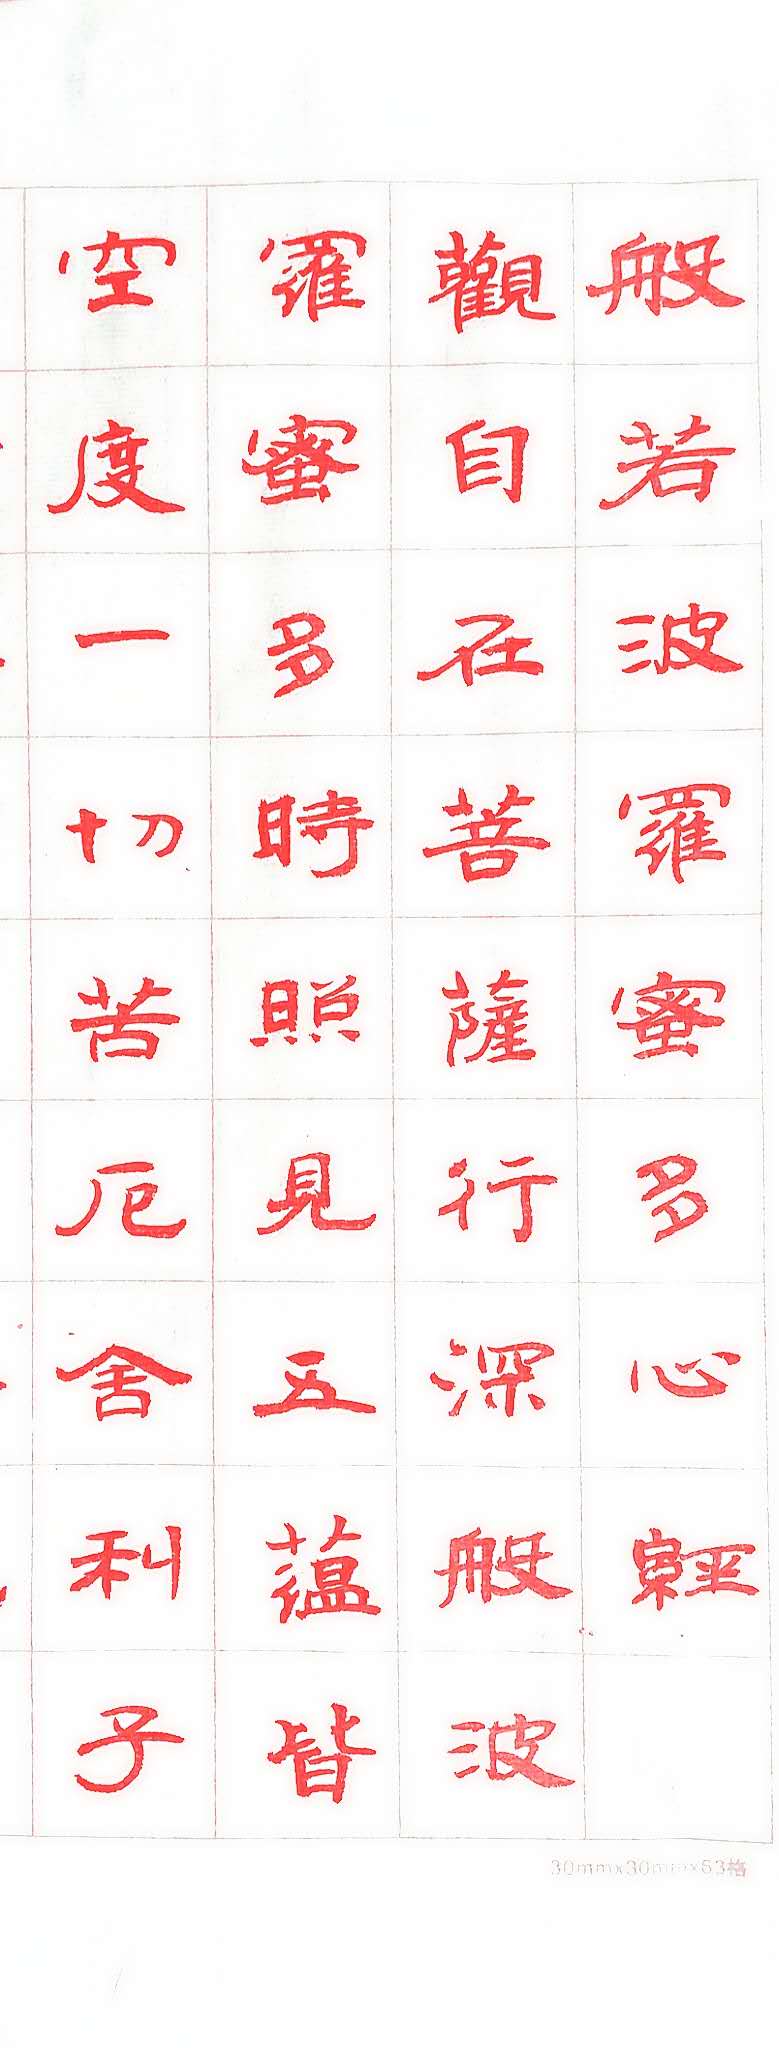 般若波羅蜜多心經
觀自在菩薩行深般波
羅蜜多時照見五蘊皆
空度一切苦厄舍利子
30mm×30mm×53格